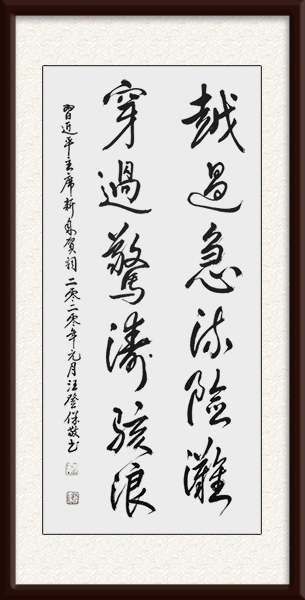 越過急流險灘
穿過驚濤駭浪
習近平主席新年賀詞二零二零年元月汪登保敬書